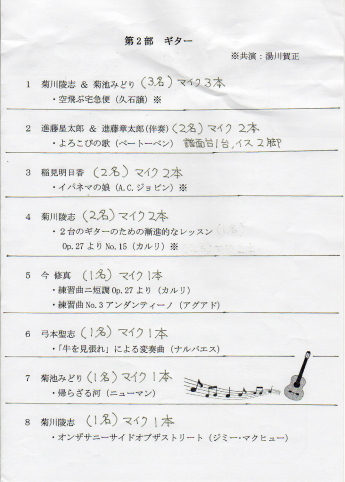 第2部　ギター
※共演：湯川賀正
1 菊川陵志 & 菊池みどり (3名) マイク3本
・空飛ぶ宅急便（久石譲）※
2 進藤星太郎 & 進藤章太郎(伴奏) (2名) マイク 2本
・よろこびの歌（ベートーベン） 譜面台1台,イス2脚
3 稲見明日香 (2名) マイク2本
・イパネマの娘（A.C.ジョビン）※
4 菊川陵志 (2名) マイク2本
・２台のギターのための漸進的なレッスン
Op.27よりNo.15（カルリ）※
5 今 修真 (1名) マイク1本
・練習曲ニ短調Op.27より（カルリ）
・練習曲No.3アンダンティーノ（アグアド）
6 弓本聖志 (1名) マイク1本
・「牛を見張れ」による変奏曲（ナルバエス）
7 菊池みどり (1名) マイク1本
・帰らざる河（ニューマン）
8 菊川陵志 (1名) マイク1本
・オンザサニーサイドオブザストリート（ジミー・マクヒュー）